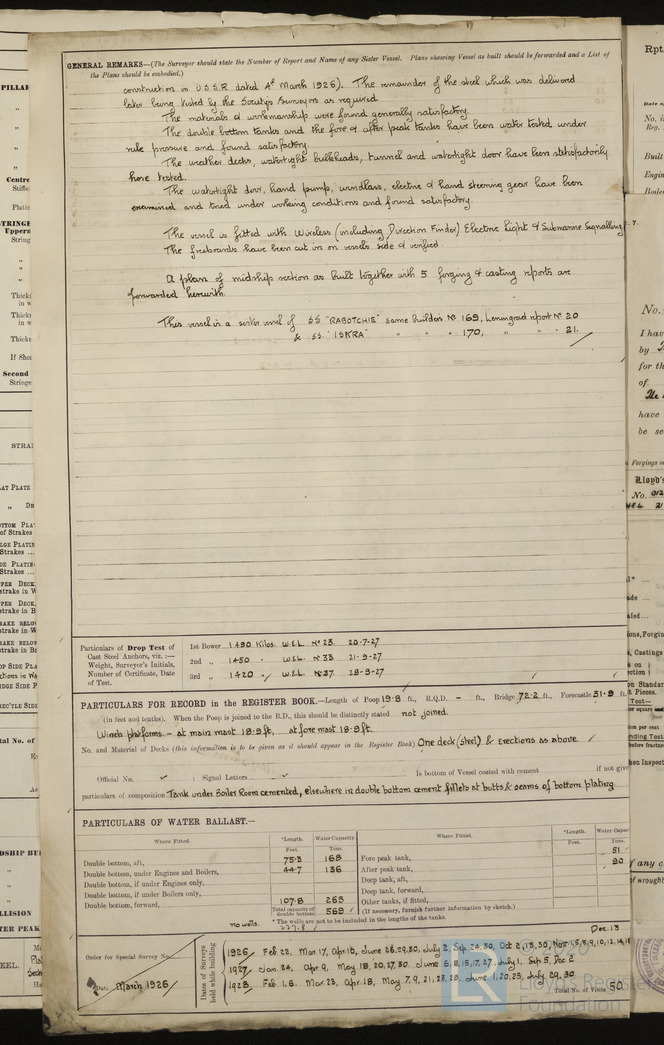 GENERAL REMARKS—(The Surveyor should state the Number of Report and Name of any Sister Vessel. Plans showing Vessel as built should be forwarded and a List of
the Plans should be embodied.)
construction in U.S.S.R. dated 4th March 1926). The remainder of the steel which was delivered
later being tested by the Society's Surveyors as required.
The materials & workmanship were found generally satisfactory.
The double bottom tanks and the fore & after peak tanks have been water tested under
rule pressure and found satisfactory.
The weather decks, watertight bulkheads, tunnel and watertight door have been satisfactorily
hose tested.
The watertight door, hand pump, windlass, electric & hand steering gear have been
examined and tried under working conditions and found satisfactory.
The vessel is fitted with Wireless (including Direction Finder) Electric Light & Submarine Signalling.
The freeboards have been cut in on vessels side & verified
A plan of midship section as built together with 5 forging & casting reports are
forwarded herewith.
This vessel is a sister vessel of SS "RABOTCHIE" same builders No 169, Leningrad report No 20
& SS "ISKRA" " " " 170, " " 21.
Particulars of Drop Test of
Cast Steel Anchors, viz.:—
Weight, Surveyor's Initials,
Number of Certificate, Date
of Test.
1st Bower 1490 Kilos W.E.L. No 23. 20-7-27
2nd „ 1450 " W.E.L. No 33 21-9-27
3rd „ 1420 " W.E.L. No 37. 28-9-27
PARTICULARS FOR RECORD in the REGISTER BOOK.—Length of Poop 19.8 ft., R.Q.D. – ft., Bridge 72.2 ft., Forecastle 31.9 ft.
(in feet and tenths). When the Poop is joined to the B.D., this should be distinctly stated not joined
Winch platforms – at main mast 18.9 ft., at fore mast 18.9 ft.
No. and Material of Decks (this information is to be given as it should appear in the Register Book) One deck (steel) & Erections as above
Official No. ; Signal Letters Is bottom of Vessel coated with cement if not give
particulars of composition Tank under Boiler Room cemented, elsewhere in double bottom cement fillets at butts & seams of bottom plating
PARTICULARS OF WATER BALLAST.—
Where Fitted. *Length. Water Capacity. Where Fitted. *Length. Water Capac
Feet. Tons. Feet. Tons.
Double bottom, aft, 75.3 168 Fore peak tank, 51
Double bottom, under Engines and Boilers, 44.7 136 After peak tank, 90
Double bottom, if under Engines only, Deep tank, aft,
Double bottom, if under Boilers only, Deep tank, forward,
Double bottom, forward, 107.8 265 Other tanks, if fitted,
Total capacity of double bottom 569 (If necessary, furnish further information by sketch.)
* The wells are not to be included in the lengths of the tanks.
no wells.
227.8
Dec. 13
Order for Special Survey No.
Date March 1926
Dates of Surveys
held while building
1926 Feb 22, Mar 17, Apr 10, June 26,29,30, July 2, Sep 24,30, Oct 2,13,30, Nov 1,5,8,9,10,12,14,18
1927 Jan. 24, Apr 9, May 18,20,27,30. June 6,8,15,17,27, July 1, Sep 5, Dec 2
1928. Feb 1,6. Mar 23, Apr 18, May 7,9,21,23,28. June 1,20,25, July 29,30.
Total No. of Visits 50.
Lloyd's Register
Foundation